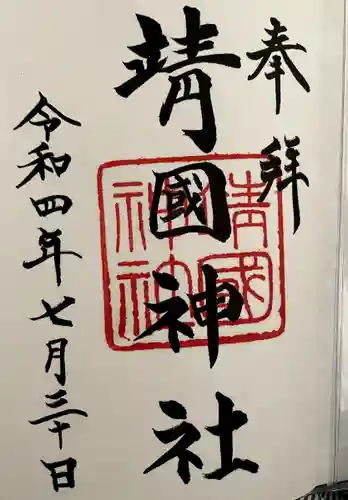 奉拝
靖國神社
令和四年七月三十日
靖國神社